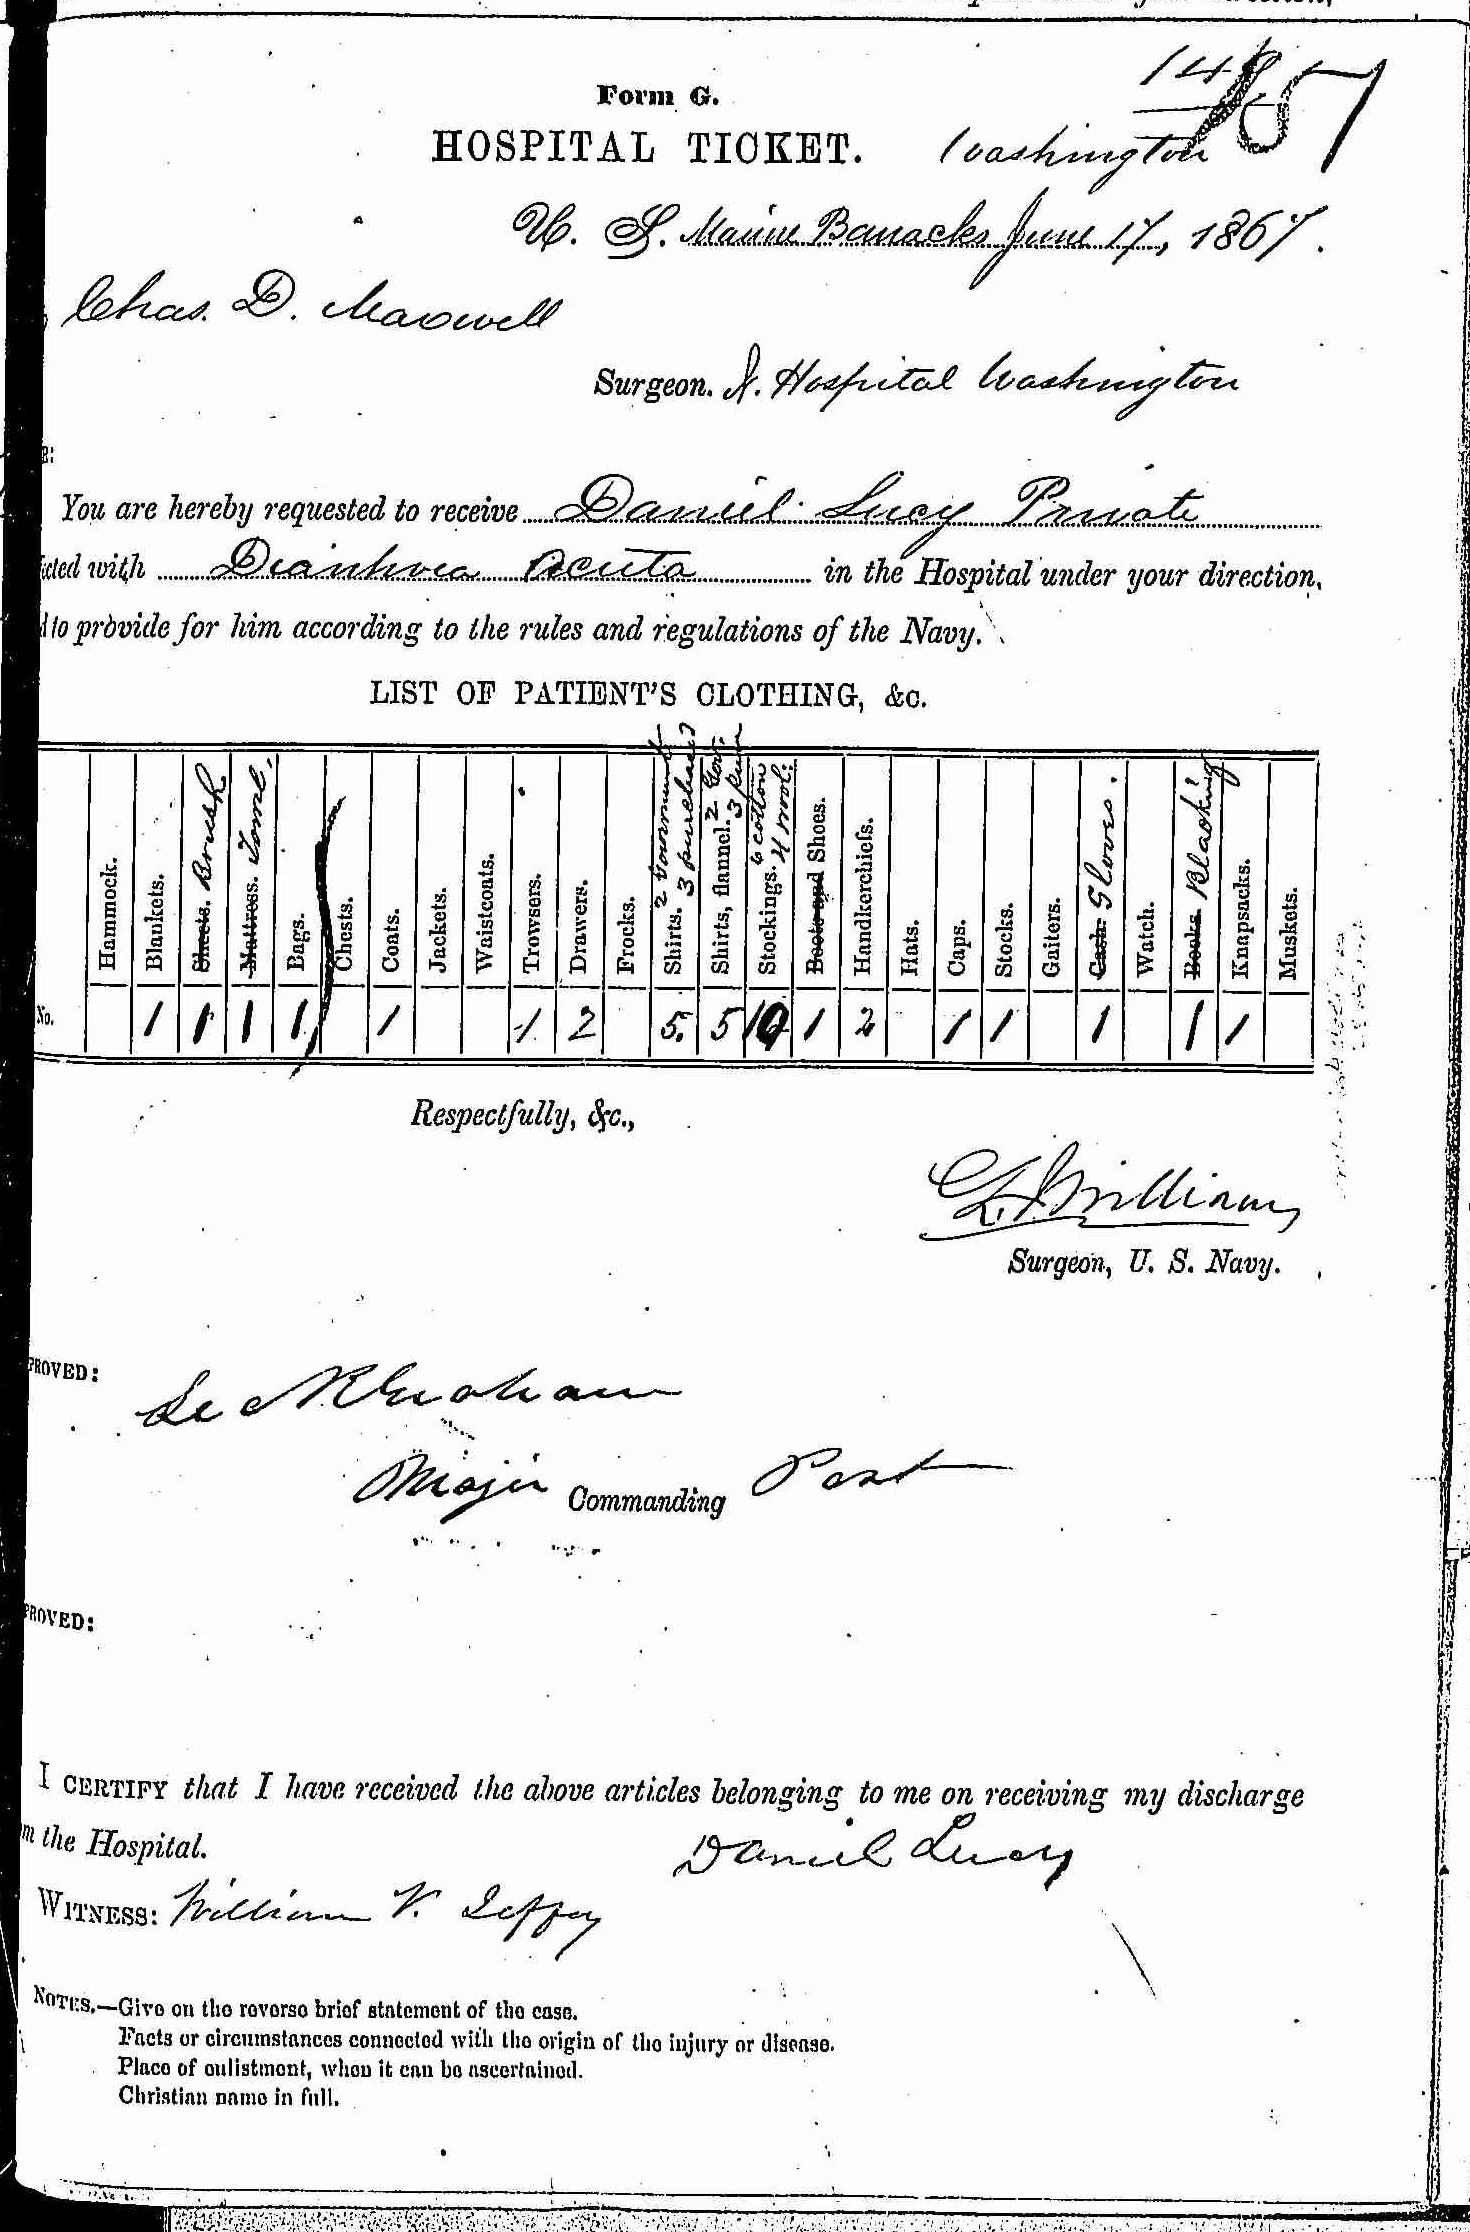 Form G.
148
157
HOSPITAL TICKET. Washington
U. S. Marine Barracks June 17, 1867.
Chas. D. Maxwell
Surgeon. N. Hospital Washington
E:
You are hereby requested to receive Daniel Lucy Private
cted with Diarrhoea Acuta in the Hospital under your direction,
d to provide for him according to the rules and regulations of the Navy.
LIST OF PATIENT'S CLOTHING, &c.
Hammock.
Blankets.
Sheets. Brush
Mattress. Comb.
Bags.
Chests.
Coats.
Jackets.
Waistcoats.
Trowsers.
Drawers.
Frocks.
Shirts. 2 Government 3 purchased
Shirts, flannel. 2 Gov. 3
Stockings. 6 cotton 4 wool.
Boots and Shoes.
Handkerchiefs.
Hats.
Caps.
Stocks.
Gaiters.
Cash. Gloves.
Watch.
Books. Blacking
Knapsacks.
Muskets.
No. 1 1 1 1 1 1 2 5. 5 10 1 2 1 1 1 1 1
Respectfully, &c.,
Williams
Surgeon, U. S. Navy.
PROVED:
Graham
Major Commanding Post
PROVED:
I CERTIFY that I have received the above articles belonging to me on receiving my discharge
m the Hospital.
Daniel Lucy
WITNESS: William V.
NOTES.—Give on the reverse brief statement of the case.
Facts or circumstances connected with the origin of the injury or disease.
Place of enlistment, when it can be ascertained.
Christian name in full.